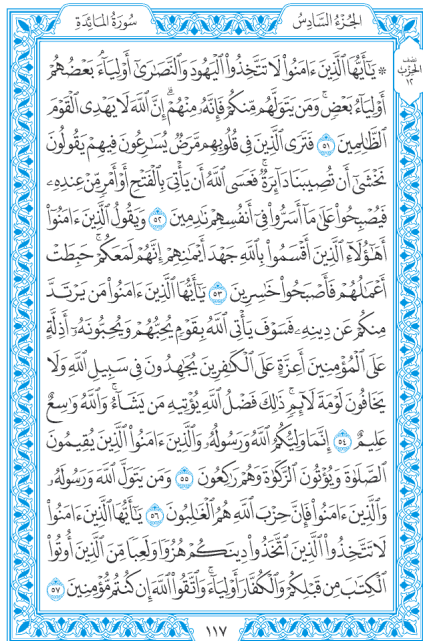 سُورَةُ المَائِدَةِ
الجُزْءُ السَّادِسُ
نصف
الحزب
١٢
۞ يَٰٓأَيُّهَا ٱلَّذِينَ ءَامَنُوا۟ لَا تَتَّخِذُوا۟ ٱلْيَهُودَ وَٱلنَّصَٰرَىٰٓ أَوْلِيَآءَۘ بَعْضُهُمْ
أَوْلِيَآءُ بَعْضٍۚ وَمَن يَتَوَلَّهُم مِّنكُمْ فَإِنَّهُۥ مِنْهُمْۗ إِنَّ ٱللَّهَ لَا يَهْدِى ٱلْقَوْمَ
ٱلظَّٰلِمِينَ ٥١ فَتَرَى ٱلَّذِينَ فِى قُلُوبِهِم مَّرَضٌ يُسَٰرِعُونَ فِيهِمْ يَقُولُونَ
نَخْشَىٰٓ أَن تُصِيبَنَا دَآئِرَةٌۚ فَعَسَى ٱللَّهُ أَن يَأْتِىَ بِٱلْفَتْحِ أَوْ أَمْرٍ مِّنْ عِندِهِۦ
فَيُصْبِحُوا۟ عَلَىٰ مَآ أَسَرُّوا۟ فِىٓ أَنفُسِهِمْ نَٰدِمِينَ ٥٢ وَيَقُولُ ٱلَّذِينَ ءَامَنُوٓا۟
أَهَٰٓؤُلَآءِ ٱلَّذِينَ أَقْسَمُوا۟ بِٱللَّهِ جَهْدَ أَيْمَٰنِهِمْ إِنَّهُمْ لَمَعَكُمْۚ حَبِطَتْ
أَعْمَٰلُهُمْ فَأَصْبَحُوا۟ خَٰسِرِينَ ٥٣ يَٰٓأَيُّهَا ٱلَّذِينَ ءَامَنُوا۟ مَن يَرْتَدَّ
مِنكُمْ عَن دِينِهِۦ فَسَوْفَ يَأْتِى ٱللَّهُ بِقَوْمٍ يُحِبُّهُمْ وَيُحِبُّونَهُۥٓ أَذِلَّةٍ
عَلَى ٱلْمُؤْمِنِينَ أَعِزَّةٍ عَلَى ٱلْكَٰفِرِينَ يُجَٰهِدُونَ فِى سَبِيلِ ٱللَّهِ وَلَا
يَخَافُونَ لَوْمَةَ لَآئِمٍۚ ذَٰلِكَ فَضْلُ ٱللَّهِ يُؤْتِيهِ مَن يَشَآءُۚ وَٱللَّهُ وَٰسِعٌ
عَلِيمٌ ٥٤ إِنَّمَا وَلِيُّكُمُ ٱللَّهُ وَرَسُولُهُۥ وَٱلَّذِينَ ءَامَنُوا۟ ٱلَّذِينَ يُقِيمُونَ
ٱلصَّلَوٰةَ وَيُؤْتُونَ ٱلزَّكَوٰةَ وَهُمْ رَٰكِعُونَ ٥٥ وَمَن يَتَوَلَّ ٱللَّهَ وَرَسُولَهُۥ
وَٱلَّذِينَ ءَامَنُوا۟ فَإِنَّ حِزْبَ ٱللَّهِ هُمُ ٱلْغَٰلِبُونَ ٥٦ يَٰٓأَيُّهَا ٱلَّذِينَ ءَامَنُوا۟
لَا تَتَّخِذُوا۟ ٱلَّذِينَ ٱتَّخَذُوا۟ دِينَكُمْ هُزُوًا وَلَعِبًا مِّنَ ٱلَّذِينَ أُوتُوا۟
ٱلْكِتَٰبَ مِن قَبْلِكُمْ وَٱلْكُفَّارَ أَوْلِيَآءَۚ وَٱتَّقُوا۟ ٱللَّهَ إِن كُنتُم مُّؤْمِنِينَ ٥٧
١١٧